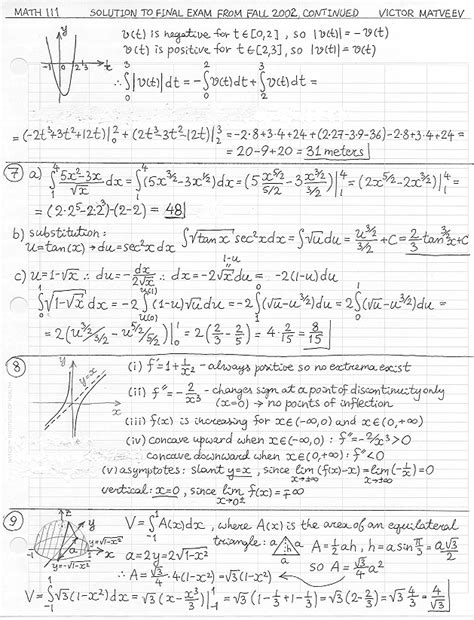 MATH 111 SOLUTION TO FINAL EXAM FROM FALL 2002, CONTINUED VICTOR MATVEEV
v(t) is negative for t∈[0,2], so |v(t)| = -v(t)
v(t) is positive for t∈[2,3], so |v(t)| = v(t)
∴ ∫₀³|v(t)|dt = -∫₀²v(t)dt + ∫₂³v(t)dt =
-1 0 2 3 t
= (-2t³+3t²+12t)|₀² + (2t³-3t²-12t)|₂³ = -2·8+3·4+24+(2·27-3·9-36)-2·8+3·4+24 =
= 20-9+20 = 31 meters
7 a) ∫₁⁴ (5x²-3x)/√x dx = ∫₁⁴(5x^(3/2)-3x^(1/2))dx = (5 x^(5/2)/(5/2) - 3 x^(3/2)/(3/2))|₁⁴ = (2x^(5/2)-2x^(3/2))|₁⁴ =
= (2·2⁵-2·2³)-(2-2) = 48
b) substitution:
u=tan(x) → du=sec²x dx ∫√tan x sec²x dx = ∫√u du = u^(3/2)/(3/2) + C = 2/3 tan^(3/2)x + C
c) u=1-√x ∴ du=-dx/(2√x) ∴ dx=-2√x du = -2(1-u)du
1-u
∫₀¹√(1-√x) dx = -2∫_(u(0))^(u(1))(1-u)√u du = -2∫₁⁰(√u-u^(3/2))du = 2∫₀¹(√u-u^(3/2))du =
= 2(u^(3/2)/(3/2) - u^(5/2)/(5/2))|₀¹ = 2(2/3 - 2/5) = 4·2/15 = 8/15
8 y y=x x
(i) f'=1+1/x² - always positive so no extrema exist
(ii) f''=-2/x³ - changes sign at a point of discontinuity only
(x=0) → no points of inflection
(iii) f(x) is increasing for x∈(-∞,0) and x∈(0,+∞)
(iv) concave upward when x∈(-∞,0): f''=-2/x³>0
concave downward when x∈(0,+∞): f''<0
(v) asymptotes: slant y=x, since lim x→±∞ (f(x)-x)=lim x→±∞ (-1/x)=0
vertical: x=0, since lim x→0± f(x)=∓∞
9 z y
V=∫₋₁¹A(x)dx, where A(x) is the area of an equilateral
triangle: a h a A=½ah, h=a sin π/3 = a√3/2
y=√1-x²
a=2y=2√1-x² so A=√3/4 a²
y=-√1-x²
∴ A=√3/4·4(1-x²)=√3(1-x²)
V=∫₋₁¹√3(1-x²)dx=√3(x-x³/3)|₋₁¹=√3(1-1/3+1-1/3)=√3(2-2/3)=√3 4/3=4/√3